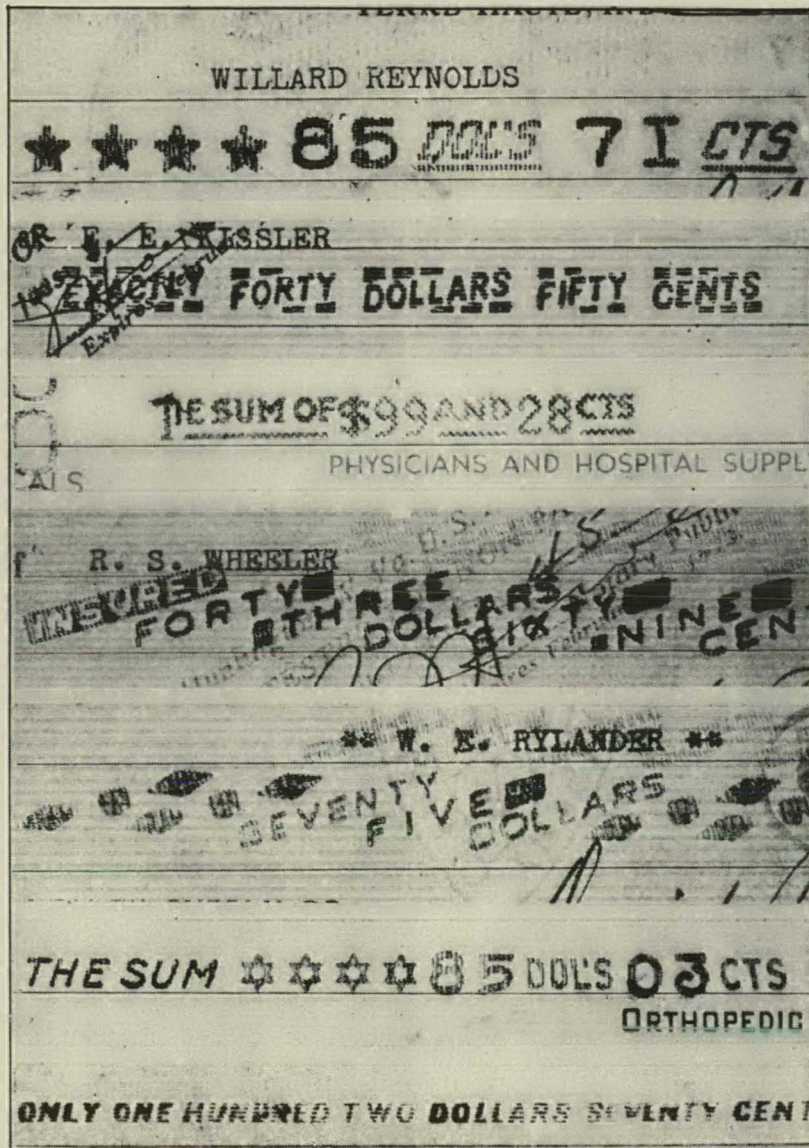 TERRE HAUTE, IND
WILLARD REYNOLDS
★ ★ ★ ★ 85 DOL'S 71 CTS
OR E. E.
Expires Februa
EXACTLY FORTY DOLLARS FIFTY CENTS
THE SUM OF $99 AND 28 CTS
PHYSICIANS AND HOSPITAL SUPPL
ALS
R. S. WHEELER
INSURED FORTY THREE DOLLARS SIXTY NINE CEN
** W. E. RYLANDER **
SEVENTY FIVE DOLLARS
THE SUM ✡ ✡ ✡ ✡ 85 DOL'S 03 CTS
ORTHOPEDIC
ONLY ONE HUNDRED TWO DOLLARS SEVENTY CENT